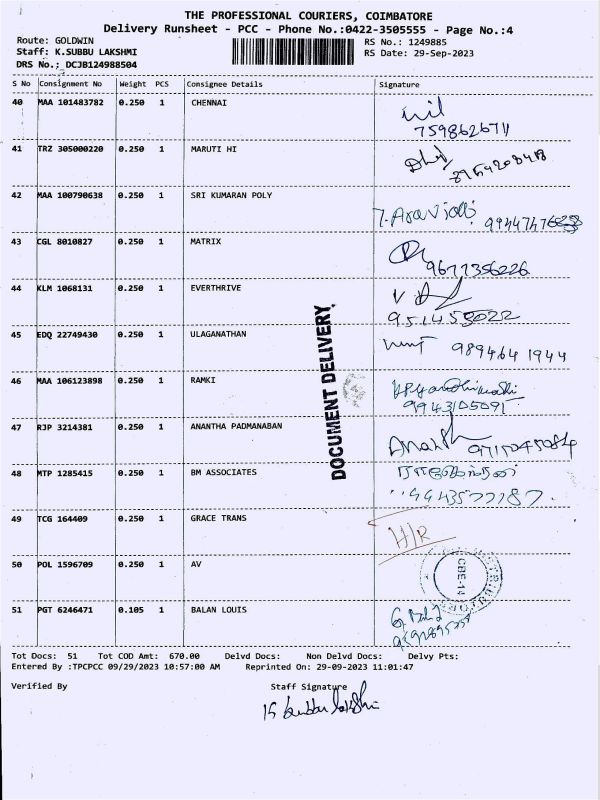 THE PROFESSIONAL COURIERS, COIMBATORE
Delivery Runsheet - PCC - Phone No.:0422-3505555 - Page No.:4
Route: GOLDWIN RS No.: 1249885
Staff: K.SUBBU LAKSHMI RS Date: 29-Sep-2023
DRS No.: DCJB124988504
S No Consignment No Weight PCS Consignee Details Signature
40 MAA 101483782 0.250 1 CHENNAI
7598626711
41 TRZ 305000220 0.250 1 MARUTI HI
42 MAA 100790638 0.250 1 SRI KUMARAN POLY
43 CGL 8010827 0.250 1 MATRIX
9677356226
44 KLM 1068131 0.250 1 EVERTHRIVE
9514558022
45 EDQ 22749430 0.250 1 ULAGANATHAN
9894641944
46 MAA 106123898 0.250 1 RAMKI
9943105091
47 RJP 3214381 0.250 1 ANANTHA PADMANABAN
Ananth 9715045084
48 MTP 1285415 0.250 1 BM ASSOCIATES
49 TCG 164409 0.250 1 GRACE TRANS H/R
50 POL 1596709 0.250 1 AV
CBE-14
51 PGT 6246471 0.105 1 BALAN LOUIS
DOCUMENT DELIVERY
Tot Docs: 51 Tot COD Amt: 670.00 Delvd Docs: Non Delvd Docs: Delvy Pts:
Entered By :TPCPCC 09/29/2023 10:57:00 AM Reprinted On: 29-09-2023 11:01:47
Verified By Staff Signature
K Subbu lakshmi